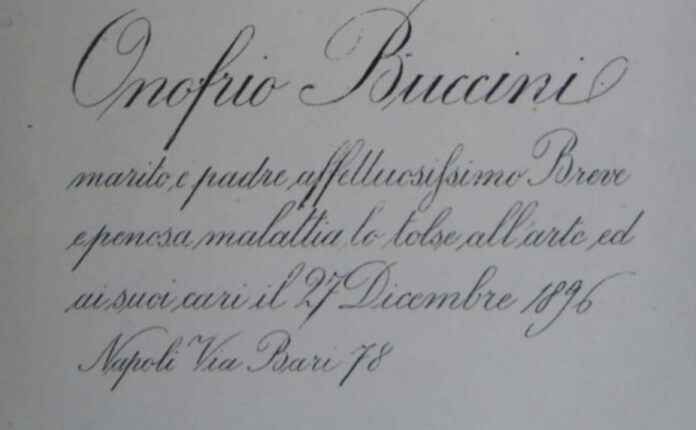 Onofrio Buccini
marito e padre affettuosissimo Breve
e penosa malattia lo tolse all'arte ed
ai suoi cari il 27 Dicembre 1896
Napoli Via Bari 78